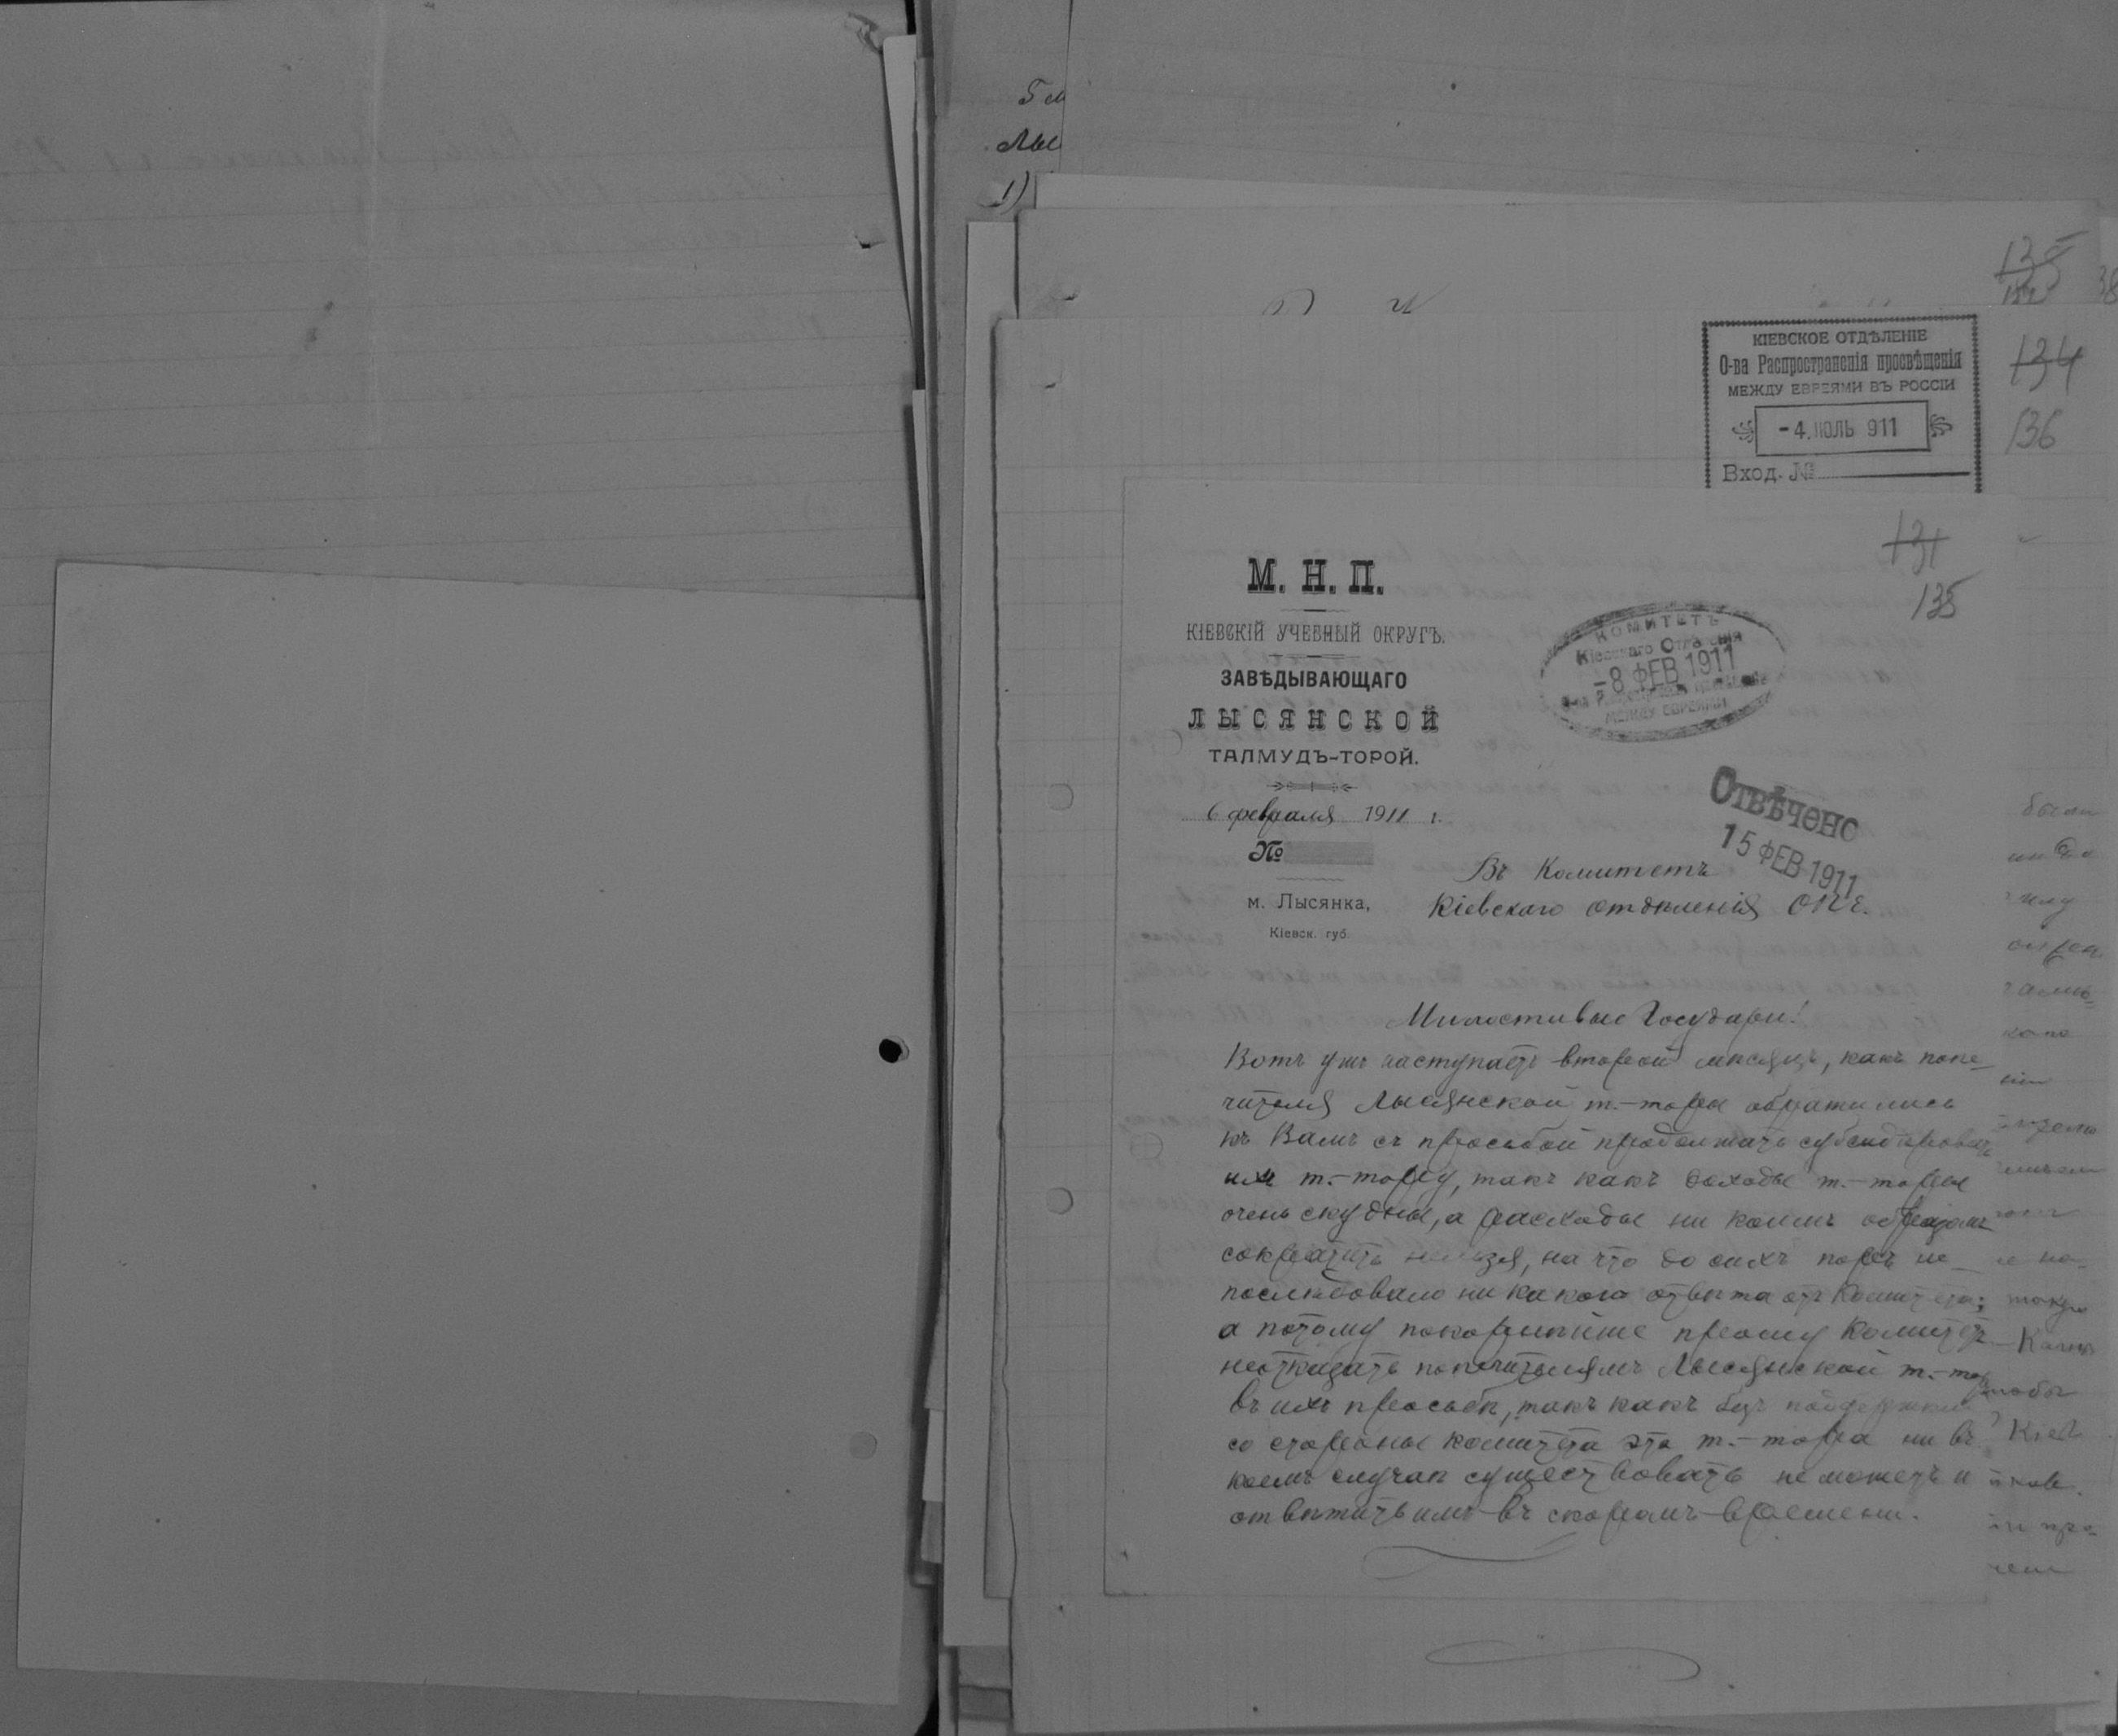 Лы
1)
135
КІЕВСКОЕ ОТДѢЛЕНІЕ
О-ва Распространенія просвѣщенія
МЕЖДУ ЕВРЕЯМИ ВЪ РОССІИ
-4. ІЮЛЬ 911
Вход. №
134
136
131
135
М. Н. П.
КІЕВСКІЙ УЧЕБНЫЙ ОКРУГЪ.
ЗАВѢДЫВАЮЩАГО
ЛЫСЯНСКОЙ
ТАЛМУДЪ-ТОРОЙ.
6 февраля 1911 г.
№
м. Лысянка,
Кіевск. губ.
КОМИТЕТЪ
Кіевскаго Отдѣленія
-8 ФЕВ 1911
МЕЖДУ ЕВРЕЯМИ
Отвѣчено
15 ФЕВ 1911
Въ Комитетъ
Кіевскаго отдѣленія ОПЕ.
Милостивые Государи!
Вотъ ужъ наступаетъ второй мѣсяцъ, какъ попе-
чителя Лысянской т.-торы обратились
къ Вамъ съ просьбой продолжать субсидировать
ихъ т.-тору, такъ какъ доходы т.-торы
очень скудны, а расходы ни коимъ образомъ
сократить нельзя, на что до сихъ поръ не
послѣдовало никакого отвѣта отъ Комитета;
а потому покорнѣйше прошу Комитетъ
неотказать попечителямъ Лысянской т.-торы
въ ихъ просьбѣ, такъ какъ безъ поддержки
со стороны комитета эта т.-тора ни въ
коемъ случаѣ существовать не можетъ и
отвѣтить имъ въ скоромъ времени.
были
Кіев